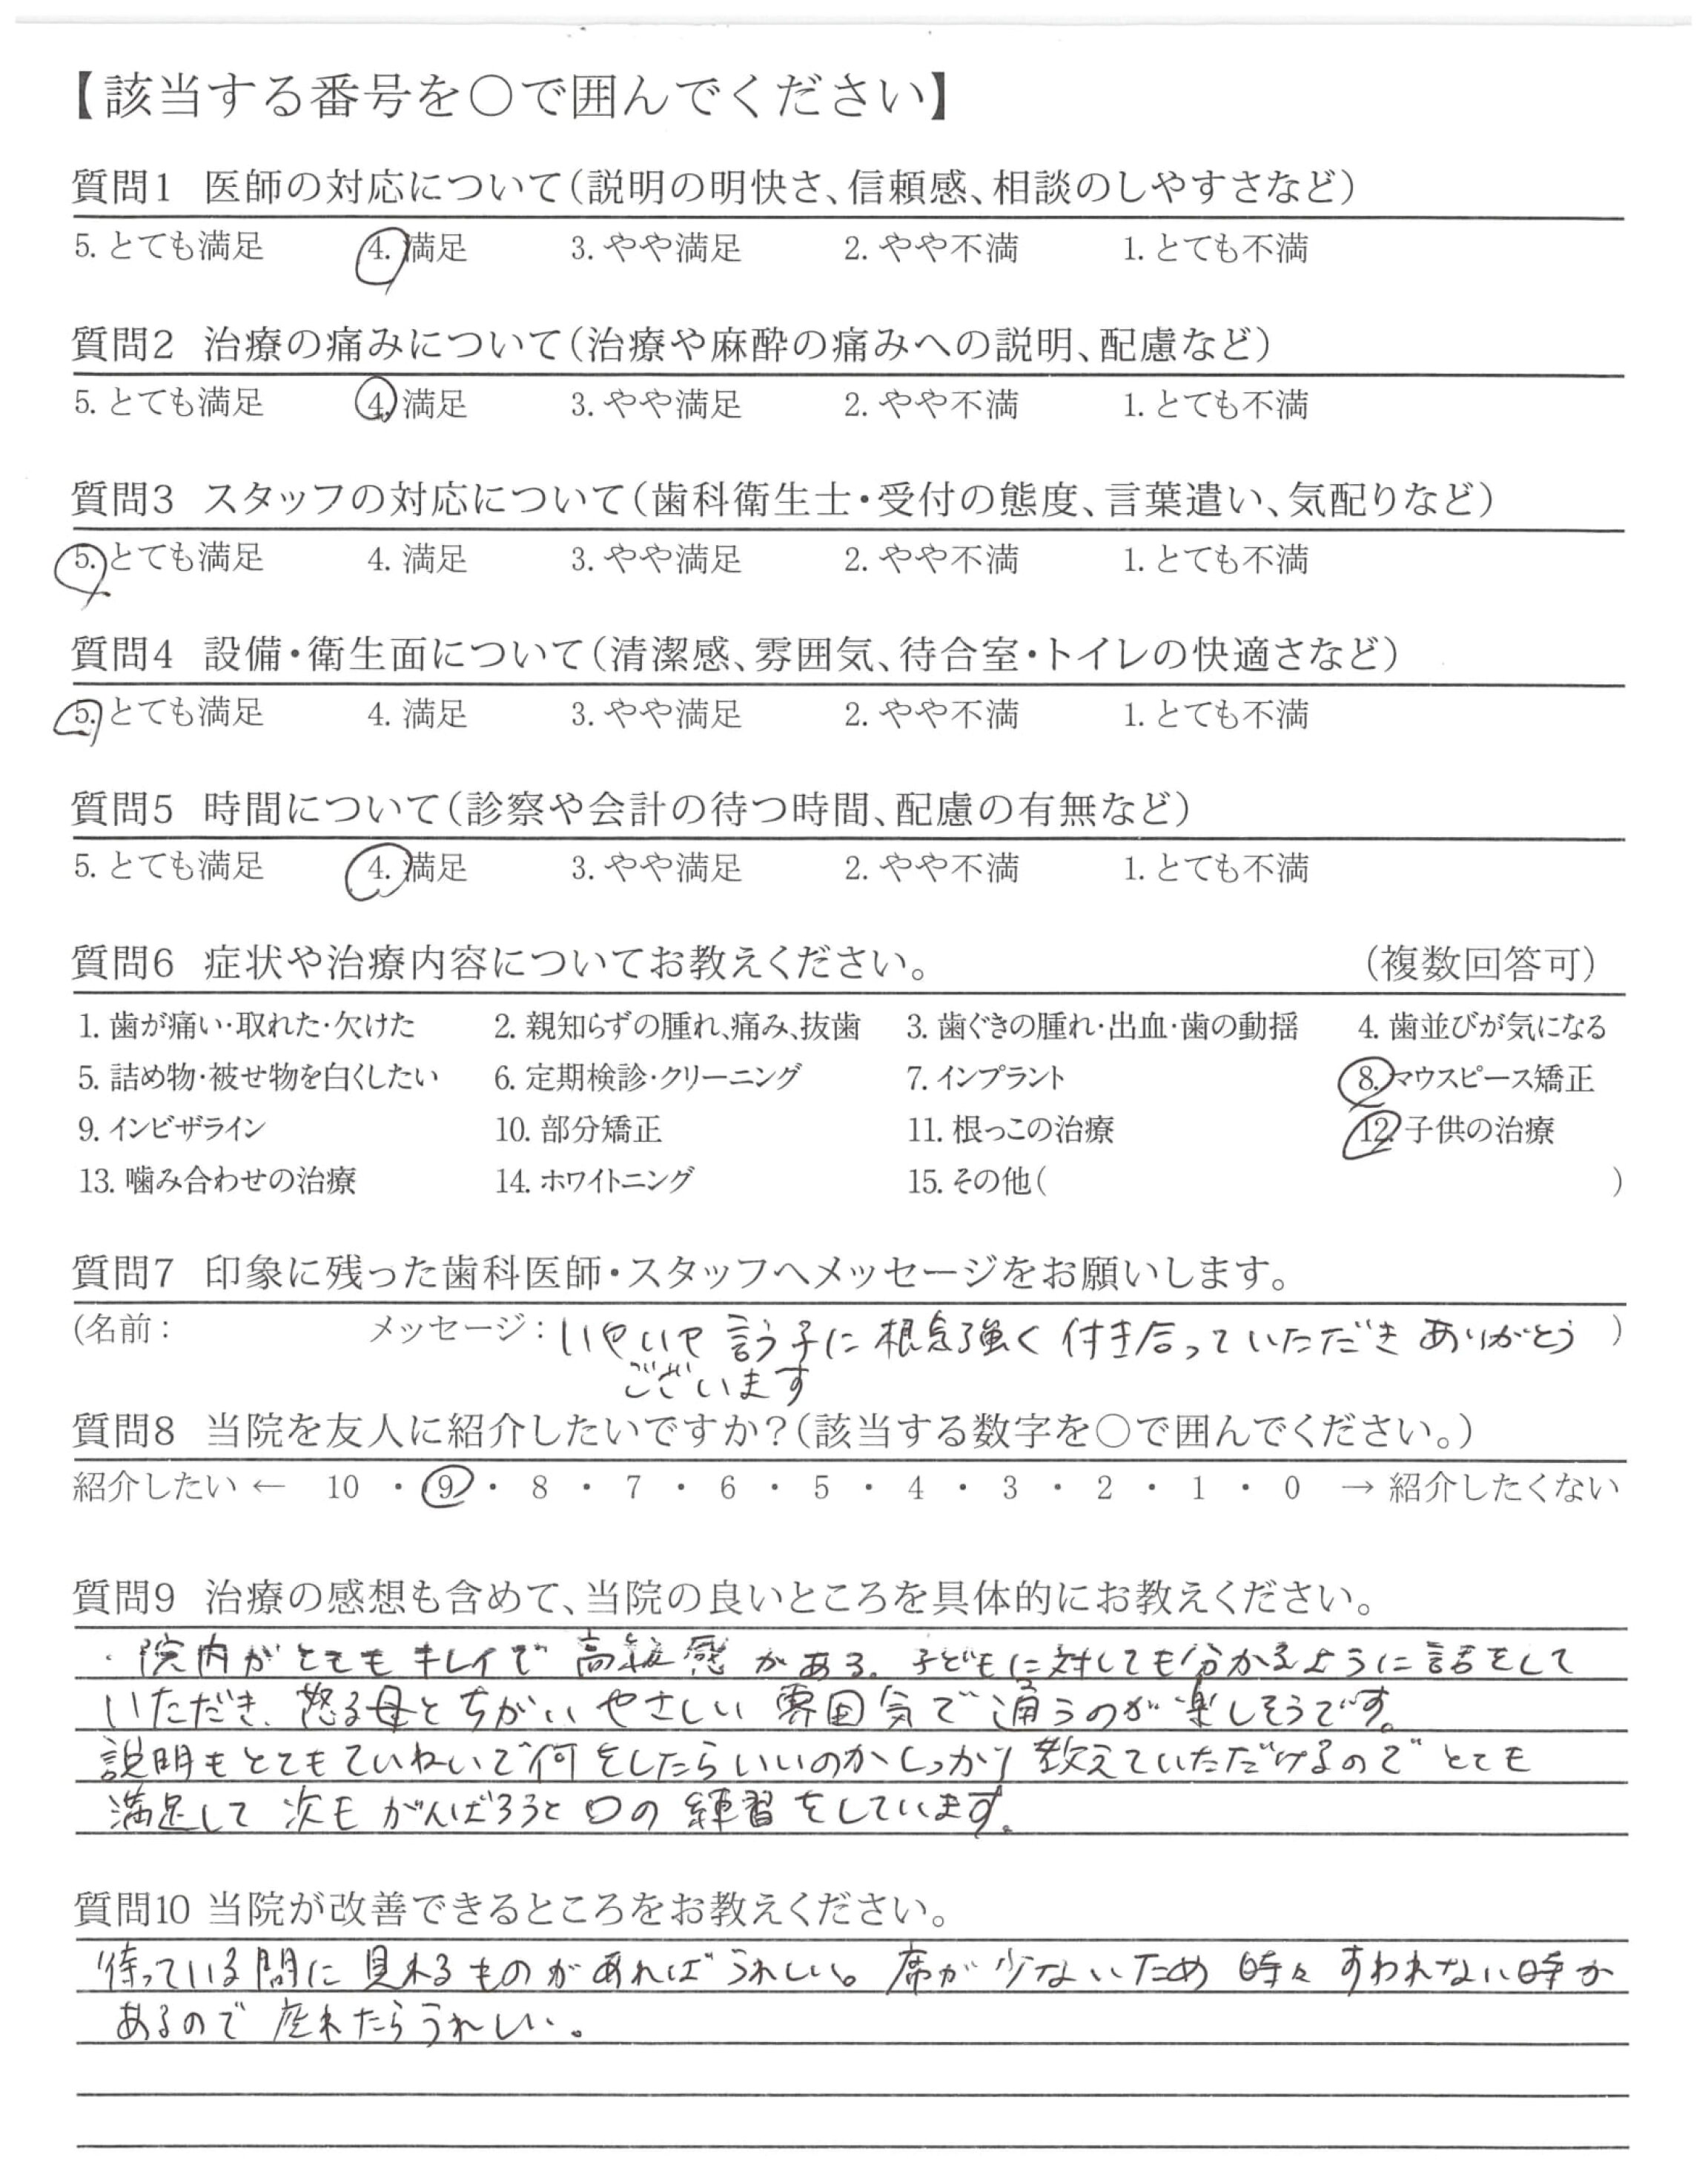 【該当する番号を○で囲んでください】
質問1 医師の対応について(説明の明快さ、信頼感、相談のしやすさなど)
5. とても満足 4. 満足 3. やや満足 2. やや不満 1. とても不満
質問2 治療の痛みについて(治療や麻酔の痛みへの説明、配慮など)
5. とても満足 4. 満足 3. やや満足 2. やや不満 1. とても不満
質問3 スタッフの対応について(歯科衛生士・受付の態度、言葉遣い、気配りなど)
5. とても満足 4. 満足 3. やや満足 2. やや不満 1. とても不満
質問4 設備・衛生面について(清潔感、雰囲気、待合室・トイレの快適さなど)
5. とても満足 4. 満足 3. やや満足 2. やや不満 1. とても不満
質問5 時間について(診察や会計の待つ時間、配慮の有無など)
5. とても満足 4. 満足 3. やや満足 2. やや不満 1. とても不満
質問6 症状や治療内容についてお教えください。 (複数回答可)
1. 歯が痛い・取れた・欠けた 2. 親知らずの腫れ、痛み、抜歯 3. 歯ぐきの腫れ・出血・歯の動揺 4. 歯並びが気になる
5. 詰め物・被せ物を白くしたい 6. 定期検診・クリーニング 7. インプラント 8. マウスピース矯正
9. インビザライン 10. 部分矯正 11. 根っこの治療 12. 子供の治療
13. 噛み合わせの治療 14. ホワイトニング 15. その他( )
質問7 印象に残った歯科医師・スタッフへメッセージをお願いします。
(名前: メッセージ: いやいや言う子に根気強く付き合っていただきありがとう )
ございます
質問8 当院を友人に紹介したいですか?(該当する数字を○で囲んでください。)
紹介したい ← 10 ・ 9 ・ 8 ・ 7 ・ 6 ・ 5 ・ 4 ・ 3 ・ 2 ・ 1 ・ 0 → 紹介したくない
質問9 治療の感想も含めて、当院の良いところを具体的にお教えください。
・院内がとてもキレイで高級感がある。子どもに対しても分かるように話をして
いただき、怒る母とちがいやさしい雰囲気で通うのが楽しそうです。
説明もとてもていねいで何をしたらいいのかしっかり教えていただけるのでとても
満足して次もがんばろうと口の練習をしています。
質問10 当院が改善できるところをお教えください。
待っている間に見れるものがあればうれしい。席が少ないため時々すわれない時が
あるので座れたらうれしい。